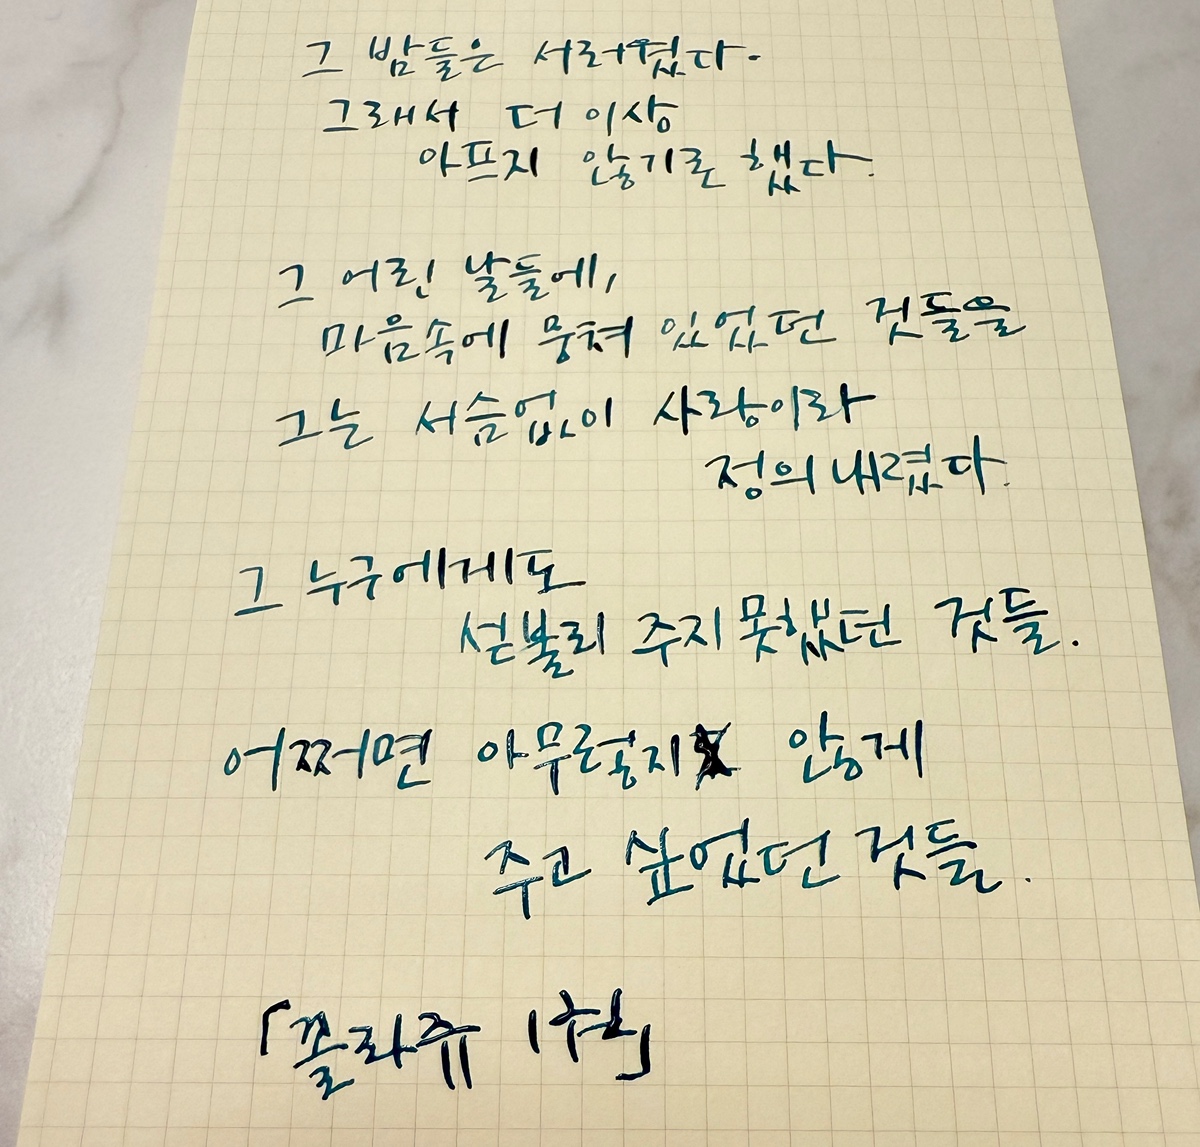 그 밤들은 서러웠다.
그래서 더 이상
아프지 않기로 했다.
그 어린 날들에,
마음속에 뭉쳐 있었던 것들을
그는 서슴없이 사랑이라
정의내렸다.
그 누구에게도
섣불리 주지못했던 것들.
어쩌면 아무렇지 않게
주고 싶었던 것들.
「꼴라쥬 1현」